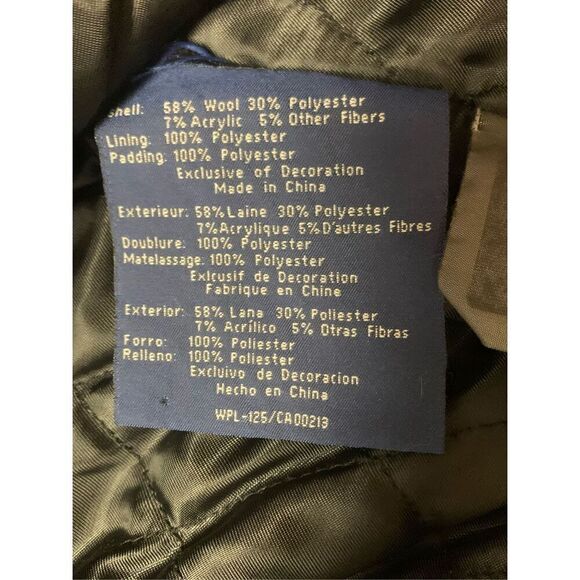 Shell: 58% Wool 30% Polyester
7% Acrylic 5% Other Fibers
Lining: 100% Polyester
Padding: 100% Polyester
Exclusive of Decoration
Made in China
Exterieur: 58% Laine 30% Polyester
7% Acrylique 5% D'autres Fibres
Doublure: 100% Polyester
Matelassage: 100% Polyester
Exlcusif de Decoration
Fabrique en Chine
Exterior: 58% Lana 30% Poliester
7% Acrílico 5% Otras Fibras
Forro: 100% Poliester
Relleno: 100% Poliester
Excluivo de Decoracion
Hecho en China
WPL-125/CA00213